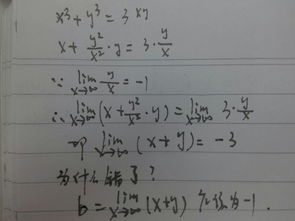 x³ + y³ = 3xy
x + y²/x² · y = 3 · y/x
∵ lim x→∞ y/x = -1
∴ lim x→∞ (x + y²/x² · y) = lim x→∞ 3 · y/x
即 lim x→∞ (x + y) = -3
为什么错了？
b = lim x→∞ (x+y) 应该为 -1.